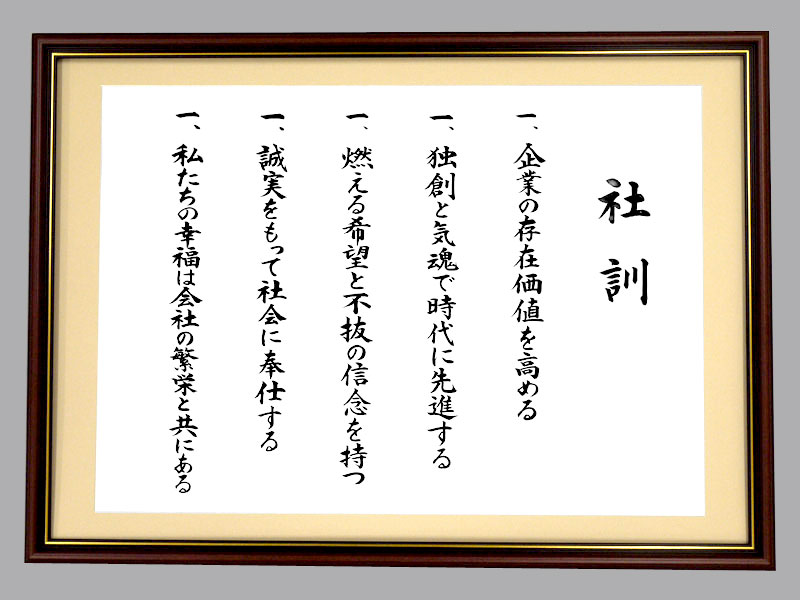 社訓
一、企業の存在価値を高める
一、独創と気魂で時代に先進する
一、燃える希望と不抜の信念を持つ
一、誠実をもって社会に奉仕する
一、私たちの幸福は会社の繁栄と共にある